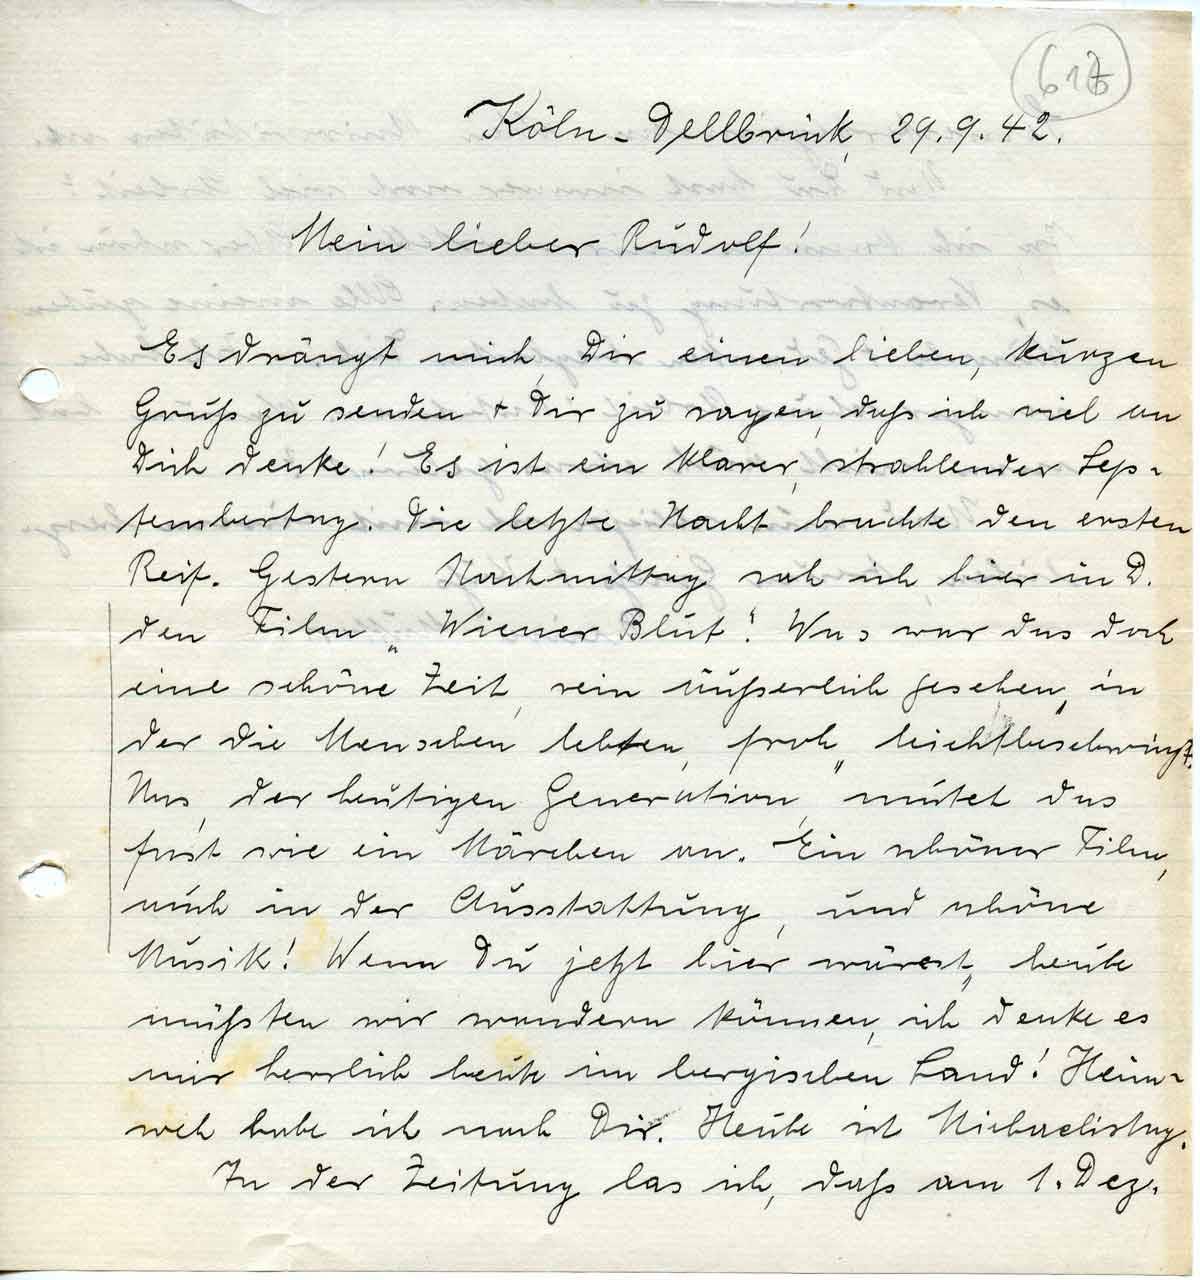 617
Köln-Dellbrück, 29.9.42.
Mein lieber Rudolf!
Es drängt mich, Dir einen lieben, kurzen
Gruß zu senden + Dir zu sagen, daß ich viel an
Dich denke! Es ist ein klarer, strahlender Sep-
tembertag. Die letzte Nacht brachte den ersten
Reif. Gestern Nachmittag sah ich hier in D.
den Film „Wiener Blut". Was war das doch
eine schöne Zeit, rein äußerlich gesehen, in
der die Menschen lebten, froh, leichtbeschwingt.
Uns, der heutigen Generation, mutet das
fast wie ein Märchen an. Ein schöner Film,
auch in der Ausstattung, und schöne
Musik! Wenn Du jetzt hier wärest, heute
müßten wir wandern können, ich denke es
mir herrlich heute im bergischen Land! Heim-
weh habe ich nach Dir. Heute ist Michaelistag.
In der Zeitung las ich, daß am 1. Dez.